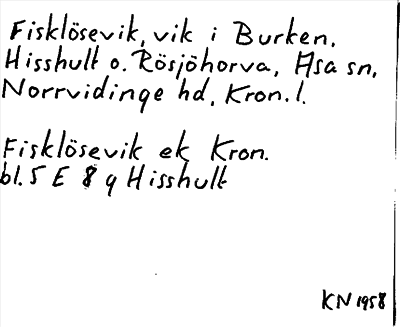 Fisklösevik, vik i Burken.
Hisshult o. Rösjöhorva, Asa sn,
Norrvidinge hd, Kron. l.
Fisklösevik ek Kron.
bl. 5 E 8 g Hisshult
KN 1958